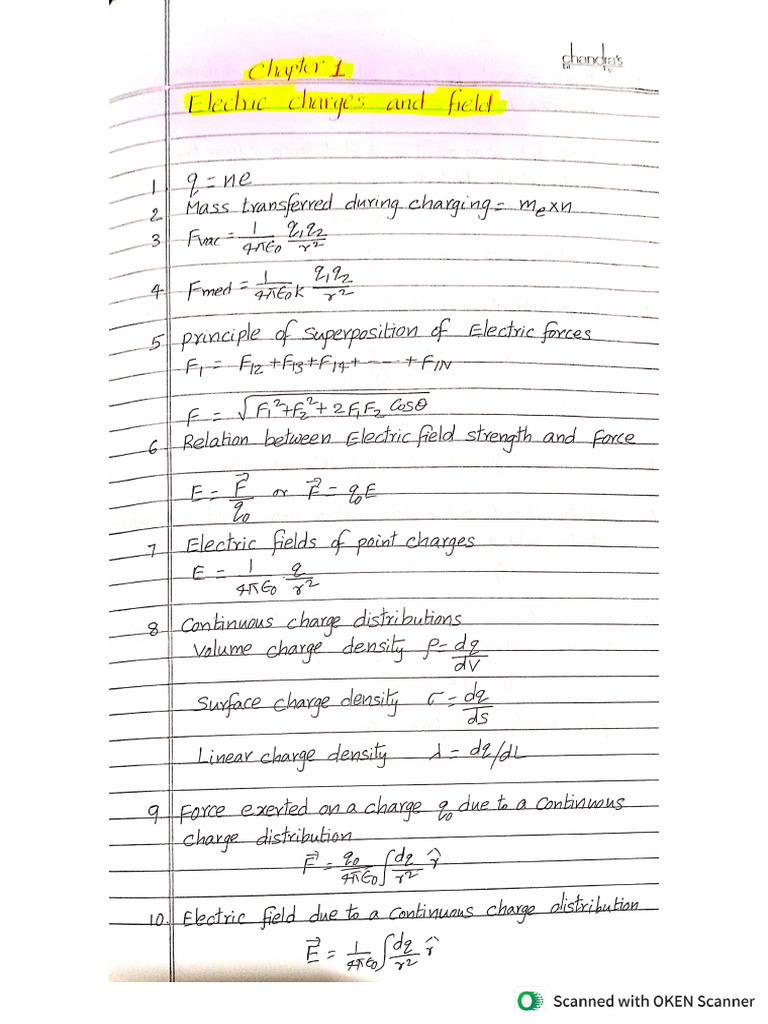 chandra's
Chapter 1
Electric charges and field
1 q = ne
2 Mass transferred during charging = mₑ×n
3 Fvac = 1/4πε₀ q₁q₂/r²
4 Fmed = 1/4πε₀k q₁q₂/r²
5 principle of superposition of Electric forces
F₁ = F₁₂ + F₁₃ + F₁₄ + ---- + F₁N
F = √F₁²+F₂²+2F₁F₂ Cosθ
6 Relation between Electric field strength and force
E = F⃗/q₀ or F⃗ = q₀E
7 Electric fields of point charges
E = 1/4πε₀ q/r²
8 Continuous charge distributions
Volume charge density ρ = dq/dV
Surface charge density σ = dq/ds
Linear charge density λ = dq/dL
9 Force exerted on a charge q₀ due to a continuous
charge distribution
F⃗ = q₀/4πε₀ ∫dq/r² r̂
10. Electric field due to a continuous charge distribution
E⃗ = 1/4πε₀ ∫dq/r² r̂
Scanned with OKEN Scanner